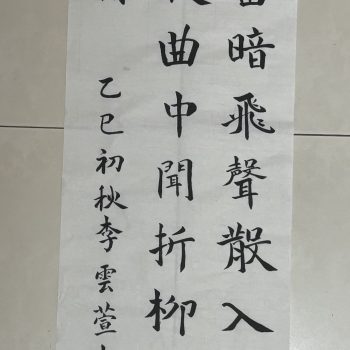 暗飛聲散入
曲中聞折柳
乙巳初秋李雲萱